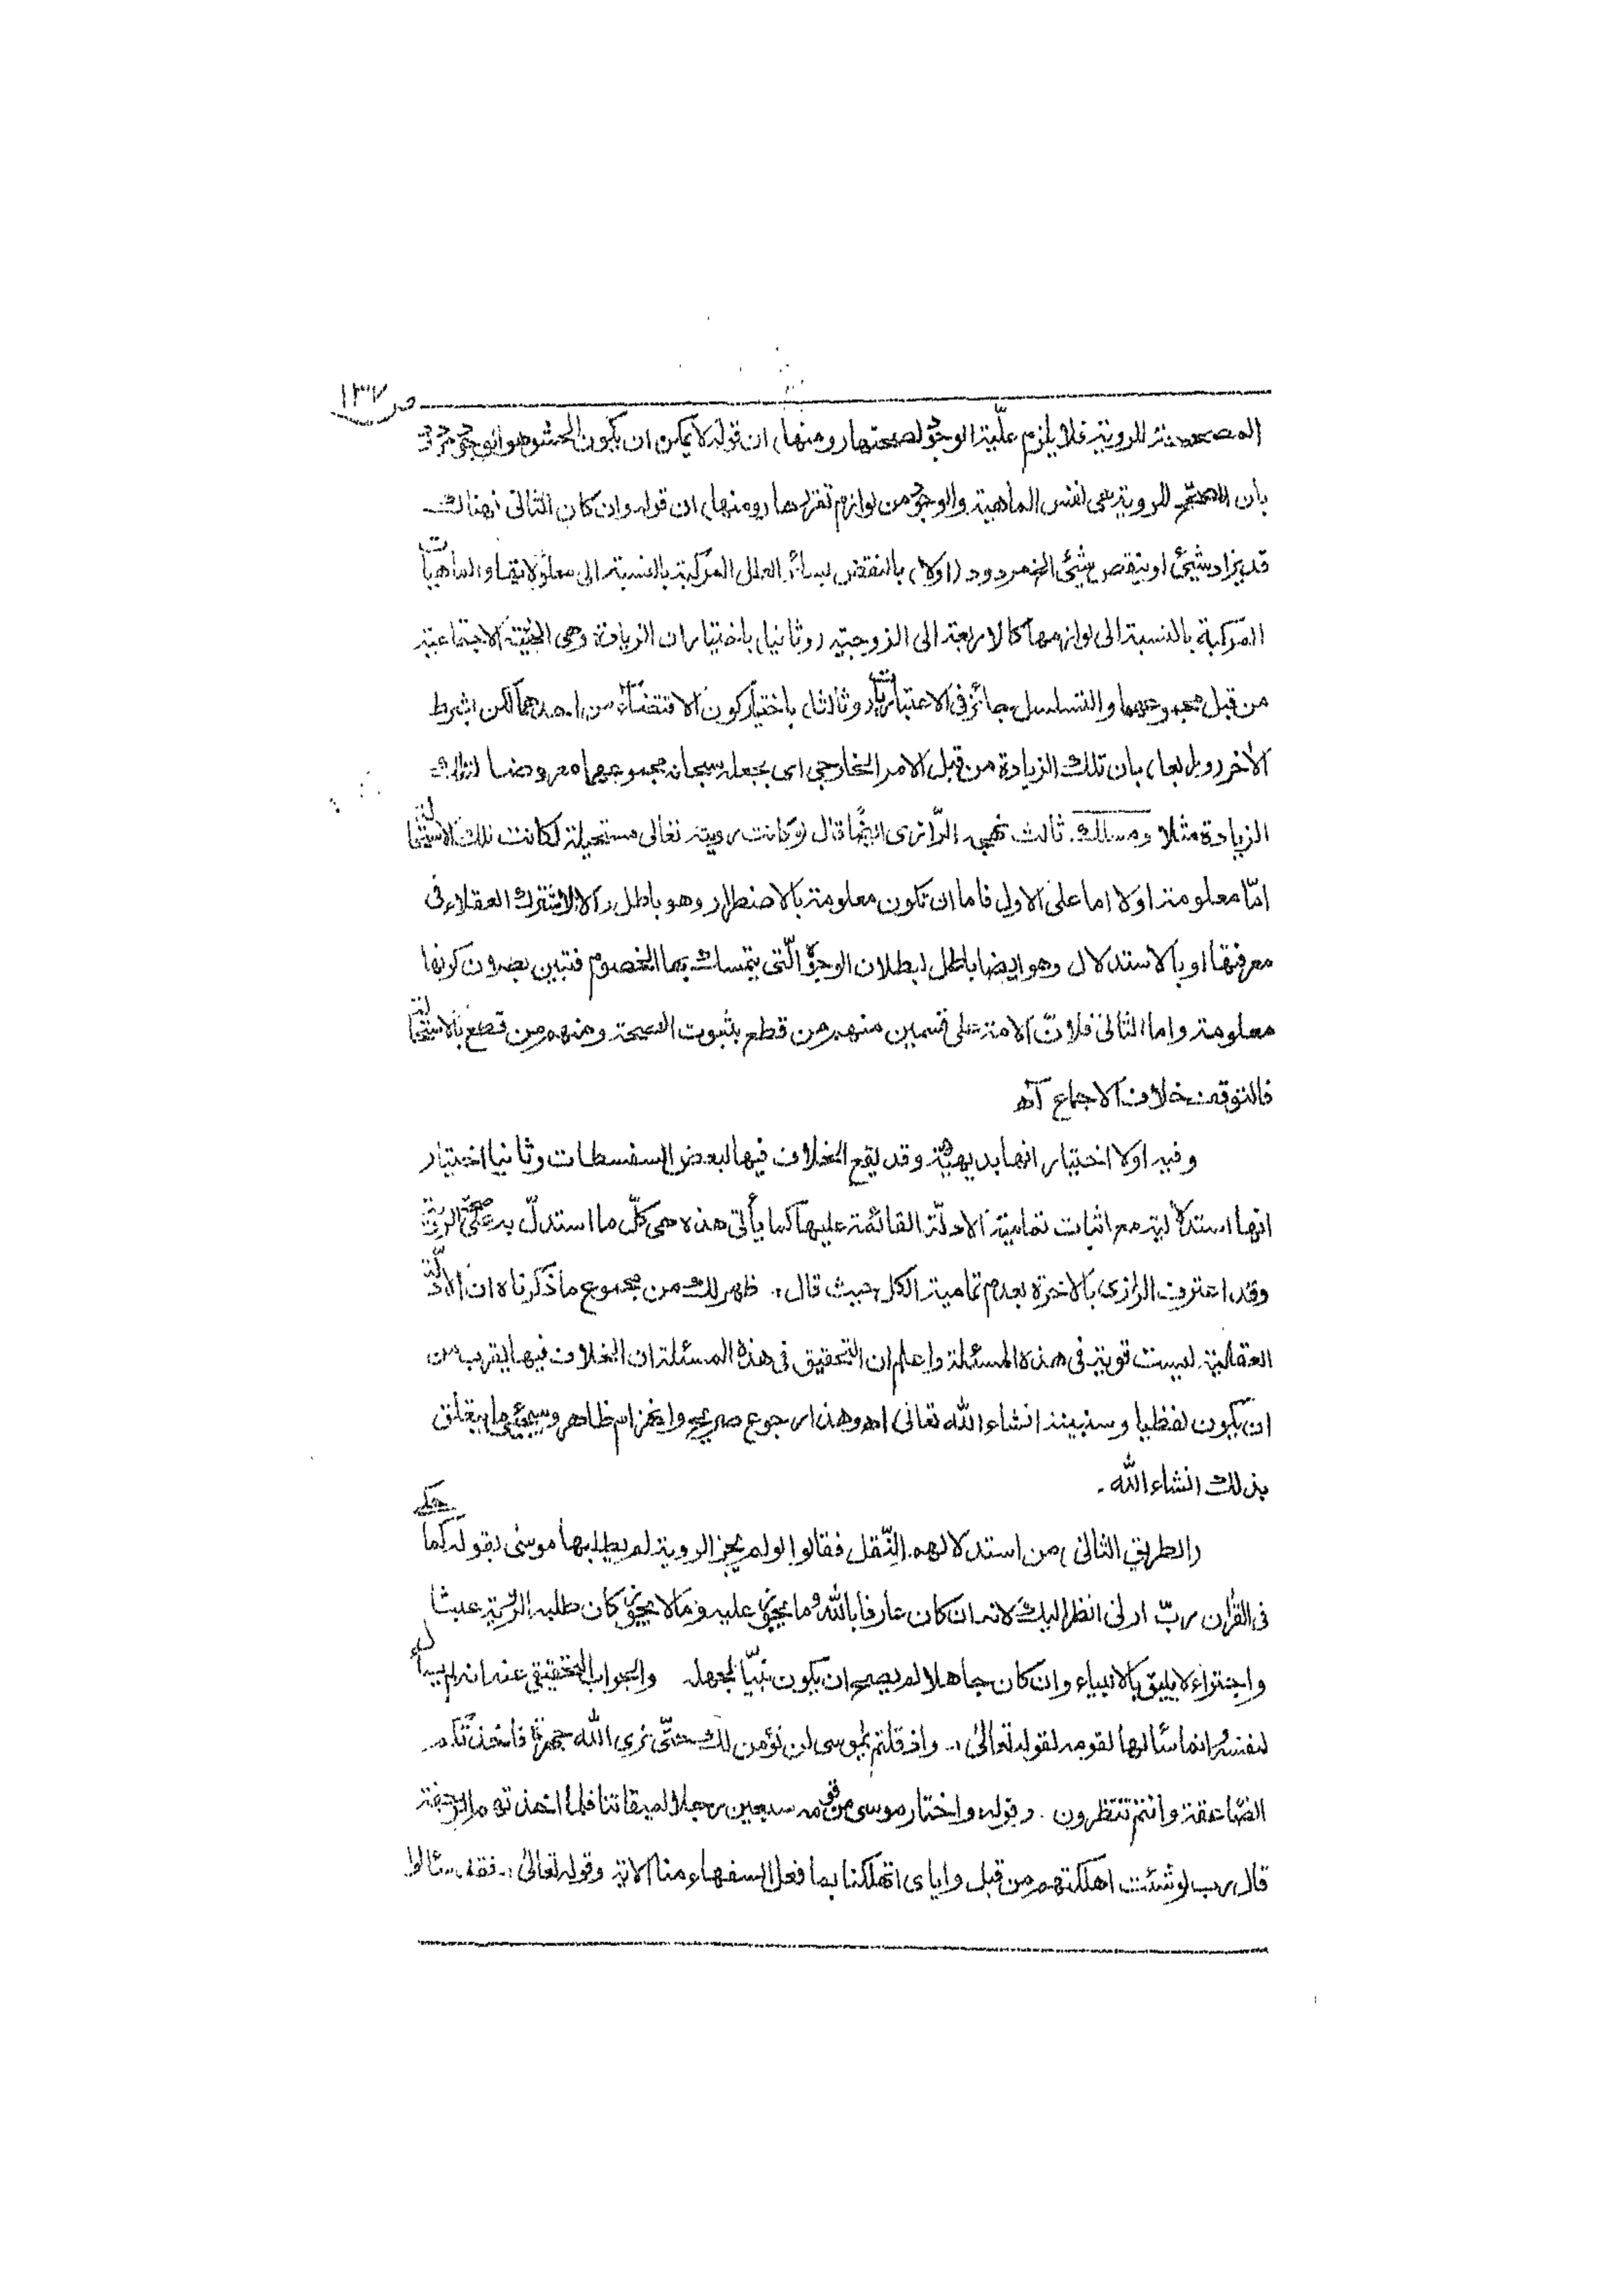 ص ١٣٧
المصححة للروية فلا يلزم علّية الوجود لصحتها (ومنها) ان قوله لا يمكن ان يكون الحدوث هو الوجود
بان المصحح للروية هى نفس الماهية والوجود من لوازم تقررها (ومنها) ان قوله وان كان الثانى فهنالك
قد يزاد شيئ او ينقص شيئ الخ مردود (اولا) بالنقض بسائر العلل المركبة بالنسبة الى معلولاتها والماهيات
المركبة بالنسبة الى لوازمها كالاربعة الى الزوجية (وثانيا) باختيار ان الزيادة وهى الهيئة الاجتماعية
من قبل مجموعهما والتسلسل جائز فى الاعتباريات (وثالثا) باختيار كون الاقتضاء من احدهما لكن بشرط
الأخر (ورابعا) بان تلك الزيادة من قبل الامر الخارجي اى بجعله سبحانه مجموعهما معروضا لتلك
الزيادة مثلا ومسلك ثالث نهجه الرّازى ايضًا قال لو كانت رويته تعالى مستحيلة لكانت تلك الاستحالة
امّا معلومة اولا اما على الاول فاما ان تكون معلومة بالاضطرار وهو باطل والا لاشترك العقلاء فى
معرفتها او بالاستدلال وهو ايضا باطل لبطلان الوجوه الّتى يتمسك بها الخصوم فتبين بطلان كونها
معلومة واما الثانى فلانّ الامة على قسمين منهم من قطع بثبوت الصحة ومنهم من قطع بالاستحالة
فالتوقف خلاف الاجماع اٰه
وفيه اولا اختيار انها بديهيّة وقد يقع الخلاف فيها لبعض السفسطات وثانيا اختيار
انها استدلالية مع اثبات تمامية الادلّة القائمة عليها كما يأتى هذه هى كلّ ما استدلّ به على صحة الروية
وقد اعترف الرازى بالاخرة بعدم تمامية الكل حيث قال ،. ظهر لك من مجموع ما ذكرناه ان الادلّة
العقلية ليست قوية فى هذه المسئلة واعلم ان التحقيق فى هذه المسئلة ان الخلاف فيها يقرب من
ان يكون لفظيا وسنبينه انشاء الله تعالى اه وهذا رجوع صريح وانهزام ظاهر وسيجيئ ما يتعلق
بذلك انشاء الله ۔
(الطريق الثانى) من استدلالهم النّقل فقالوا لو لم يجز الروية لم يطلبها موسٰى بقوله كما حكى
فى القرأن ربّ ارنى انظر اليك لانه ان كان عارفا بالله وما يجوز عليه وما لا يجوز كان طلبه الروية عبثا
واجتراء لا يليق بالانبياء وان كان جاهلا لم يصح ان يكون نبيّا لجهله والجواب التحقيقى عنه انه لم يسأله
لنفسه وانما سألها لقومه لقوله تعالىٰ ،. واذ قلتم يٰموسى لن نؤمن لك حتّى نرى الله جهرة فاخذتكم
الصّاعقة وانتم تنظرون . وقوله واختار موسى من قومه سبعين رجلا لميقاتنا فلما اخذتهم الرجفة
قال رب لو شئت اهلكتهم من قبل واياى اتهلكنا بما فعل السفهاء منا الاية وقوله تعالىٰ ،. فقد سألوا